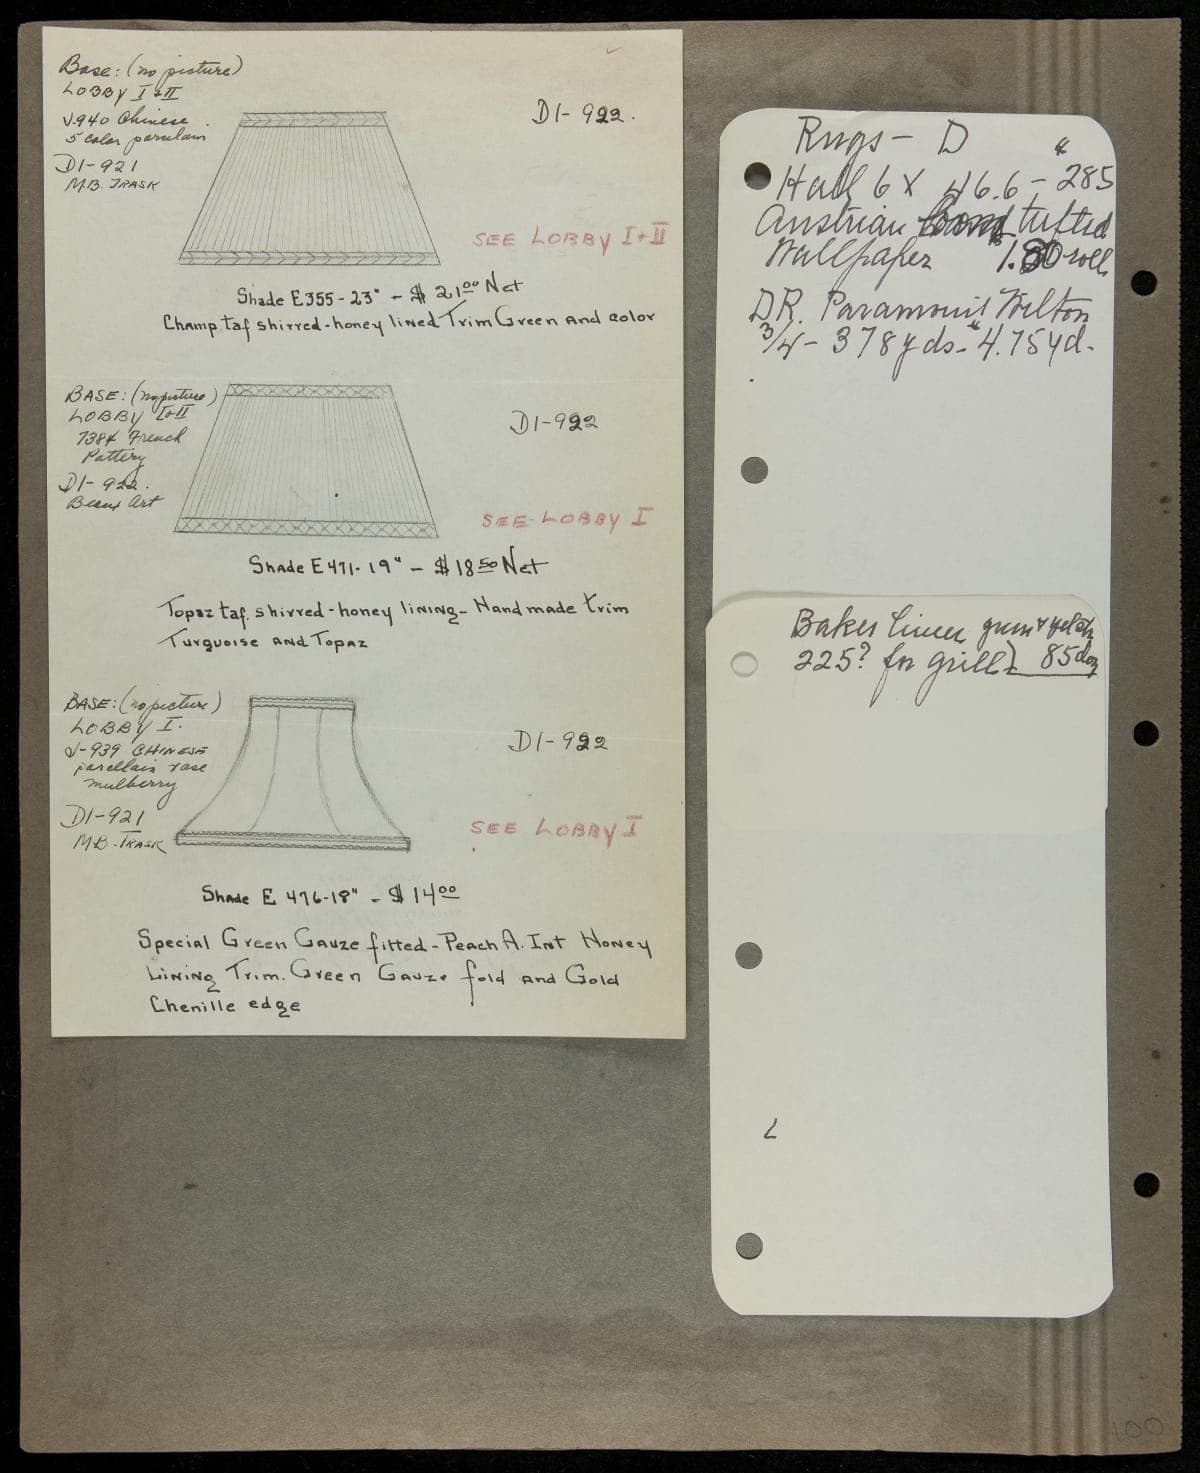 Base: (no picture)
LOBBY I + II
J.940 Chinese
5 color porcelain
D1-921
M.B. TRASK
D1-922.
SEE LOBBY I + II
Shade E355-23" - $21⁰⁰ Net
Champ. taf shirred-honey lined Trim Green and color
BASE: (no picture)
LOBBY I+II
7384 French
Pottery
D1-922.
Beaux Art
D1-922
SEE LOBBY I
Shade E471-19" - $18⁵⁰ Net
Topaz taf. shirred-honey lining-Handmade trim
Turquoise and Topaz
BASE: (no picture)
LOBBY I.
J-939 CHINESE
porcellain vase
mulberry
D1-921
M.B. TRASK
D1-922
SEE LOBBY I
Shade E 476-18" - $14⁰⁰
Special Green Gauze fitted-Peach A. Int Honey
Lining Trim. Green Gauze fold and Gold
Chenille edge
Rugs - D
Hall 6 X 46.6 - 285
Austrian tufted
Wallpaper 1.80 roll
DR. Paramount Wilton
3/4 - 378 yds - 4.75 yd.
Baker Linen
225? for grill) 85 doz
100